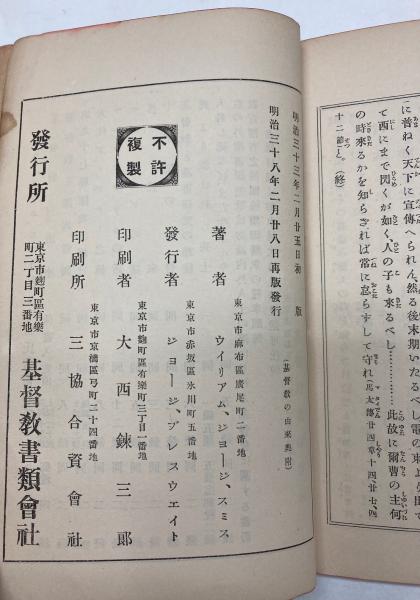 に普ねく天下に宣傳へられん、然る後末期いたるべし、電の東より出で
て西にまで閃くが如く、人の子も來るべし…………此故に爾曹の主何
の時來るかを知らざれば常に怠らずして守れ(馬太傳廿四章十四、廿七、四
十二節)と。(終)
明治三十三年二月廿五日初版
明治三十八年二月廿八日再版發行
(基督敎の由來奧附)
東京市麻布區廣尾町二番地
著者 ウイリアム、ジョージ、スミス
東京市赤坂區氷川町五番地
發行者 ジョージ、ブレスウエイト
東京市麴町區有樂町三丁目一番地
印刷者 大西鍊三郞
東京市京橋區弓町二十四番地
印刷所 三協合資會社
不許
複製
發行所 東京市麴町區有樂
町二丁目三番地 基督敎書類會社